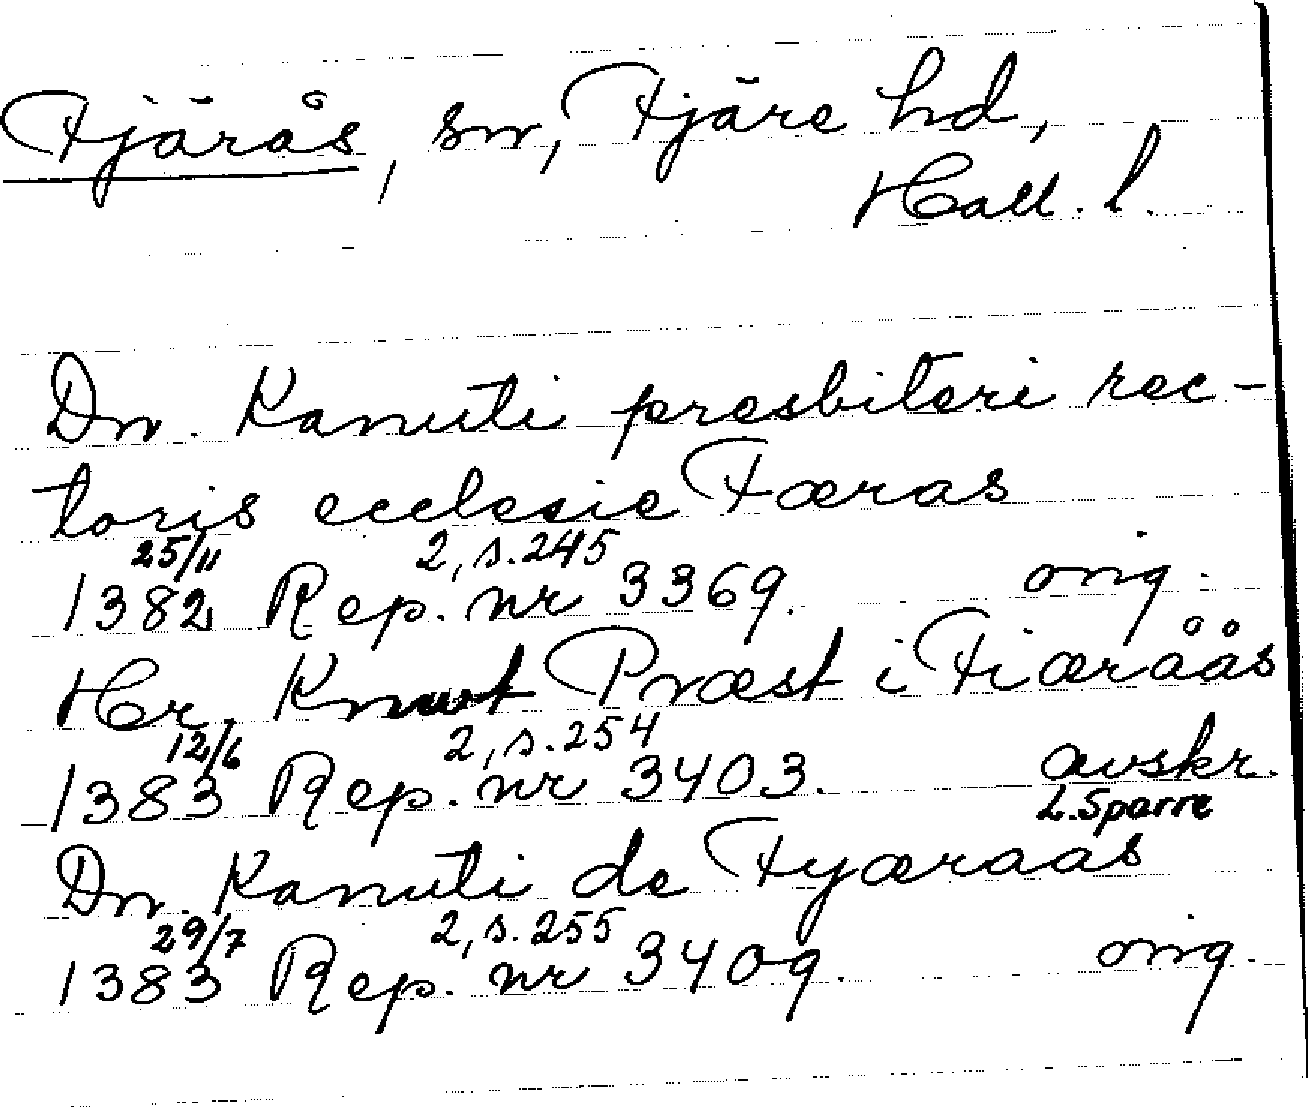 Fjärås, sn, Fjäre hd,
Hall. l.
Dn. Kanuti presbiteri rec-
toris ecclesie Færas
25/11 2, s. 245
1382 Rep. nr 3369. orig.
Hr. Knut Præst i Fiæråås
12/6 2, s. 254
1383 Rep. nr 3403. avskr.
L. Sparre
Dn. Kanuti de Fyæraas
29/7 2, s. 255
1383 Rep. nr 3409. orig.